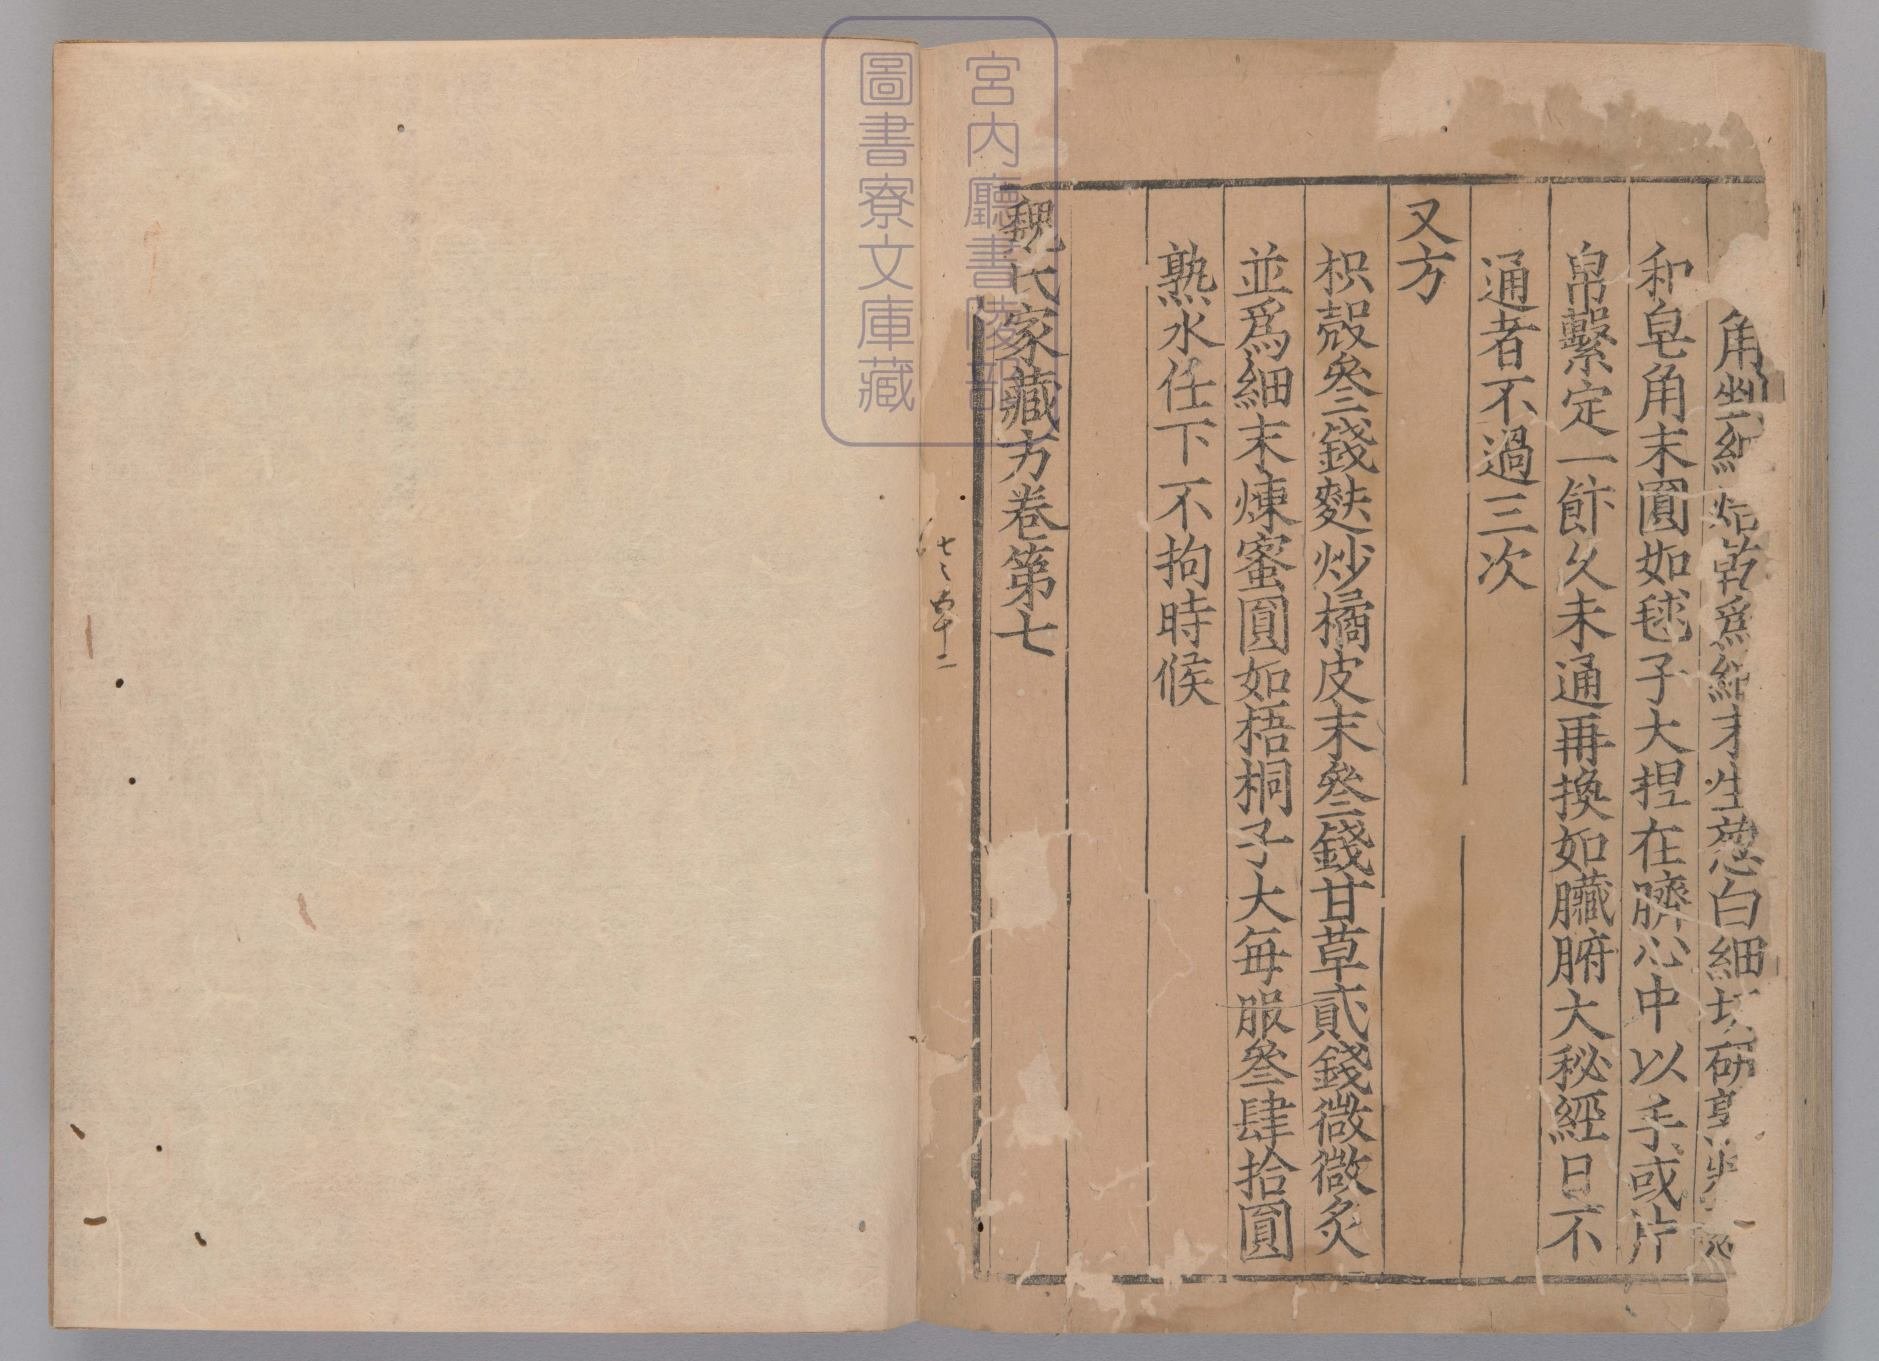 角 爲細末生葱白細切研
和皂角末圓如毬子大捏在臍心中以手或片
帛繫定一飰久未通再換如臟腑大秘經日不
通者不過三次
又方
枳殻叄錢麩炒橘皮末叄錢甘草貳錢微微炙
並爲細末煉蜜圓如梧桐子大每服叄肆拾圓
熟水任下不拘時候
魏氏家藏方卷第七
宮内廳書陵部
圖書寮文庫藏